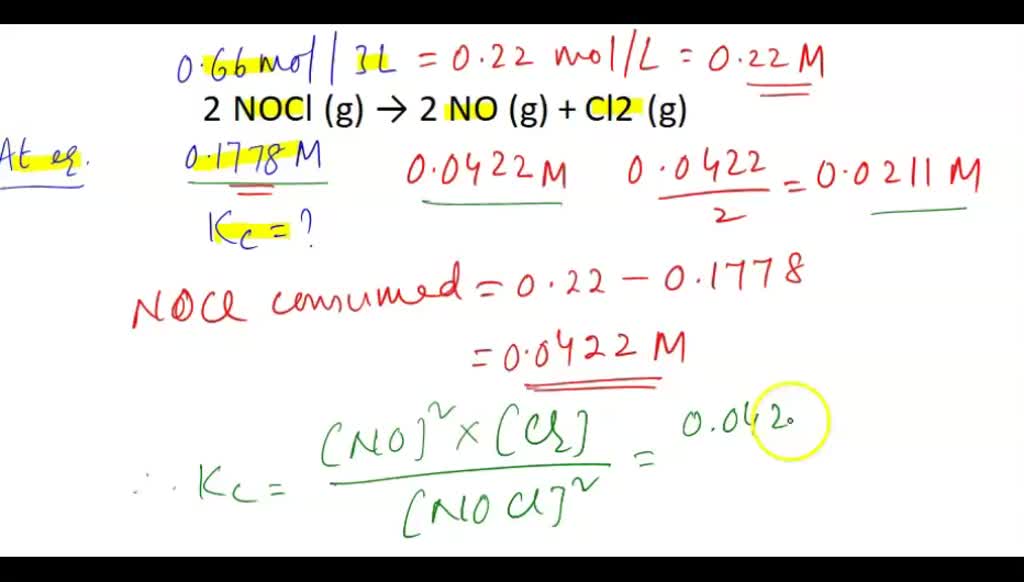 0.66 mol / 3L = 0.22 mol/L = 0.22 M
2 NOCl (g) → 2 NO (g) + Cl2 (g)
At eq. 0.1778 M 0.0422 M 0.0422/2 = 0.0211 M
Kc = ?
NOCl consumed = 0.22 - 0.1778
= 0.0422 M
∴ Kc = [NO]² × [Cl2] / [NOCl]² = 0.042